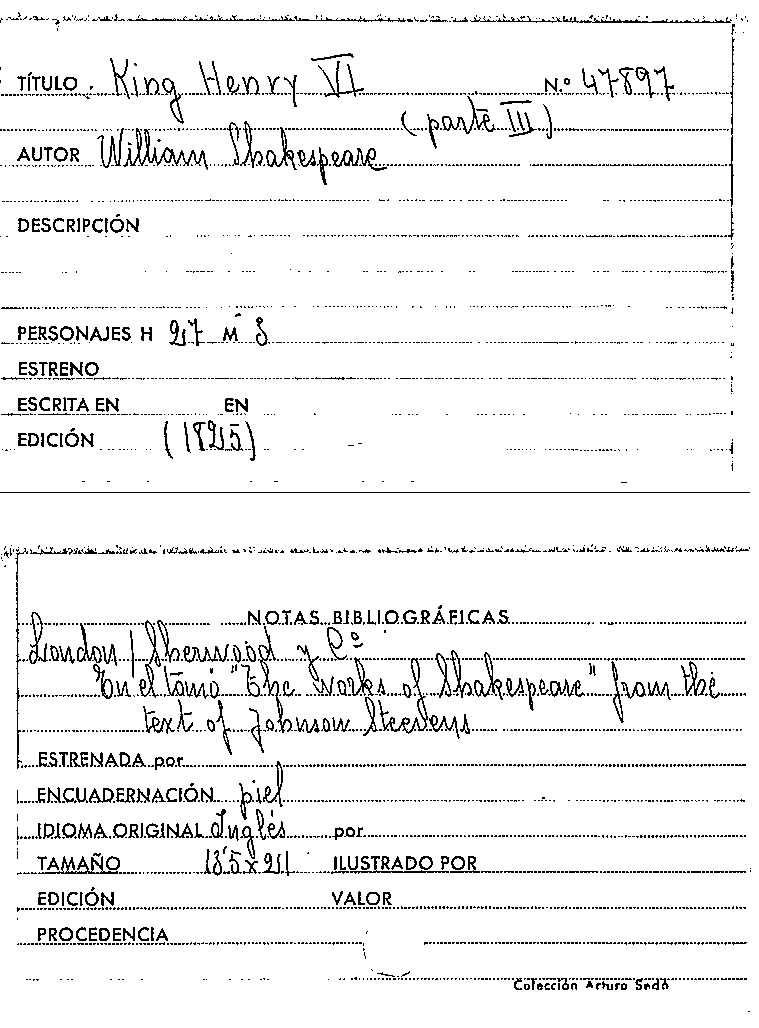 TÍTULO. King Henry VI N.º 47897
(parte III)
AUTOR William Shakespeare
DESCRIPCIÓN
PERSONAJES H 27 M 3
ESTRENO
ESCRITA EN EN
EDICIÓN (1825)
NOTAS BIBLIOGRÁFICAS
London / Sherwood y Cº
En el tomo "The Works of Shakespeare" from the
text of Johnson Steevens
ESTRENADA por
ENCUADERNACIÓN piel
IDIOMA ORIGINAL Inglés por
TAMAÑO 13'5 x 21 ILUSTRADO POR
EDICIÓN VALOR
PROCEDENCIA
Colección Arturo Sedó